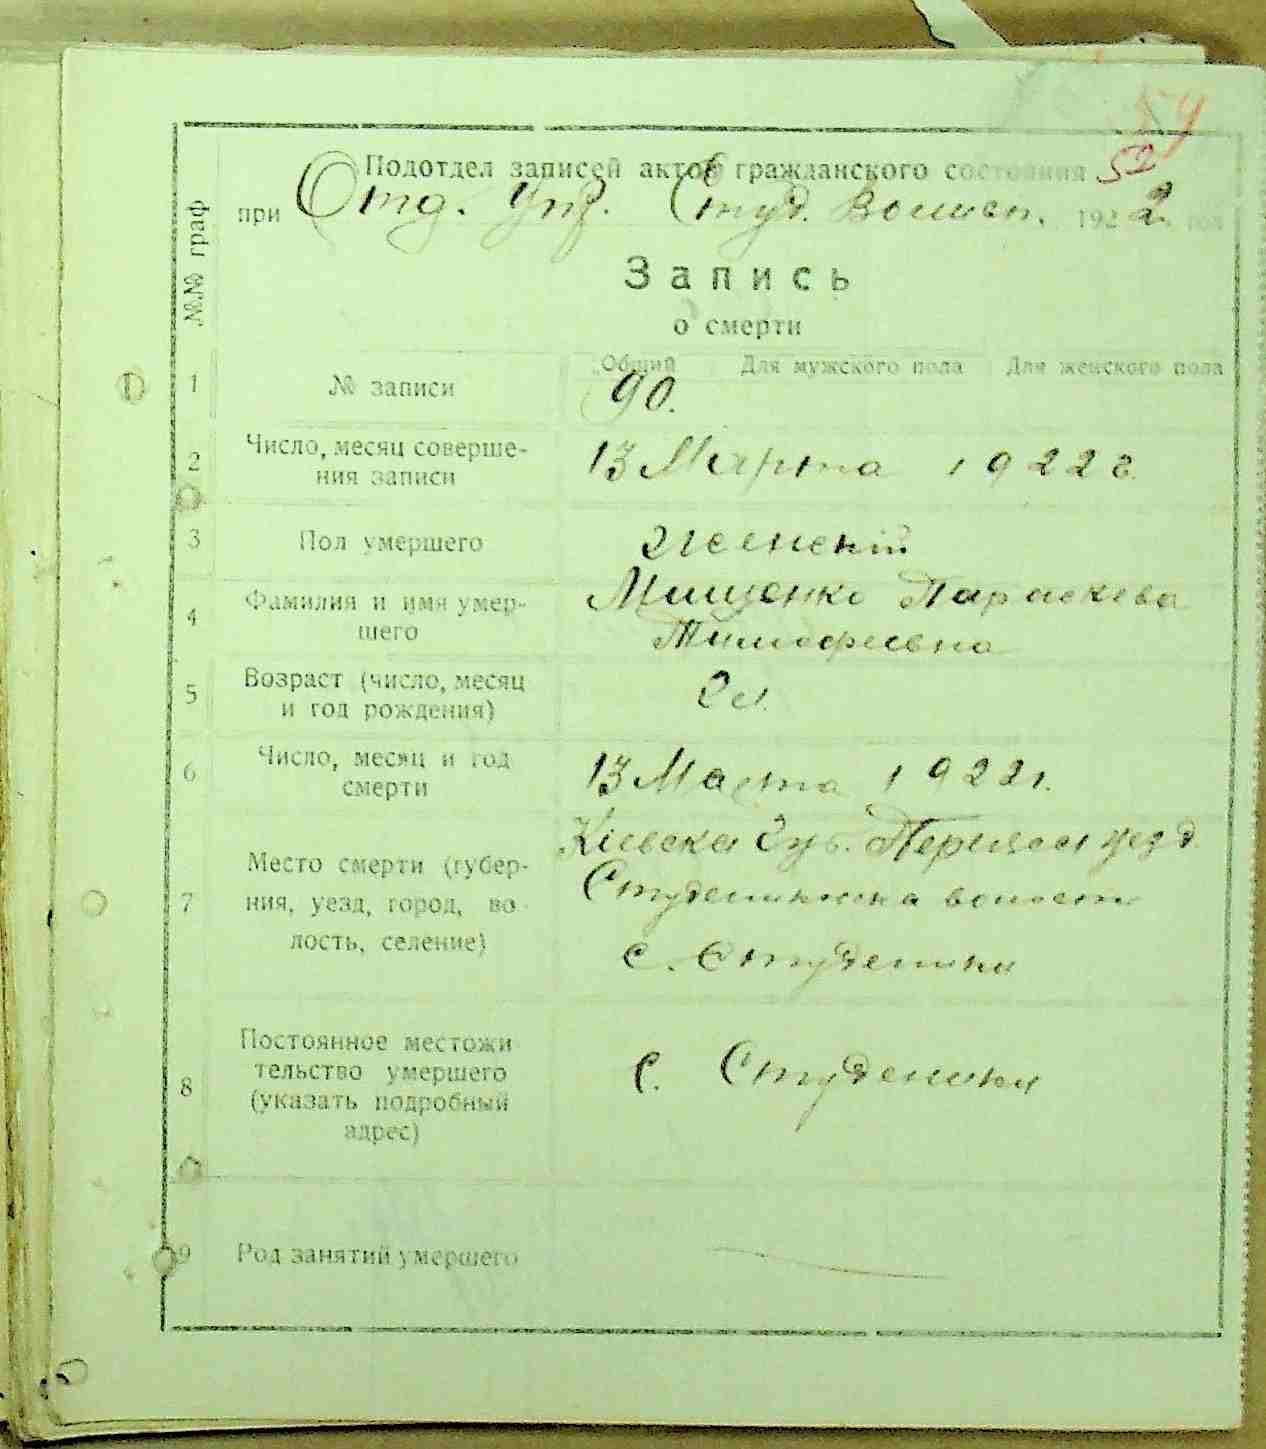 54
52
Подотдел записей актов гражданского состояния
при Отд. Упр. Студ. Волисп. 1922 год
№№ граф
Запись
о смерти
Общий Для мужского пола Для женского пола
1 № записи 90.
2 Число, месяц соверше-
ния записи
13 Марта 1922 г.
3 Пол умершего женский
4 Фамилия и имя умер-
шего
Мищенко Параскева
Тимофеевна
5 Возраст (число, месяц
и год рождения)
6 Число, месяц и год
смерти
13 Марта 1922 г.
7 Место смерти (губер-
ния, уезд, город, во
лость, селение)
Киевска губ. уезд
волост
с. Студеники
8 Постоянное местожи
тельство умершего
(указать подробный
адрес)
с. Студеники
9 Род занятий умершего